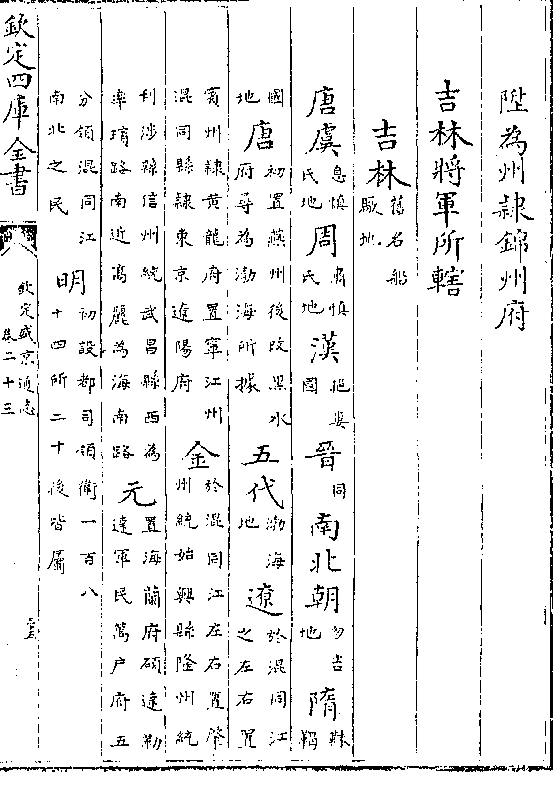 陞為州隸錦州府
吉林將軍所轄
吉林舊名船厰地
唐虞息慎氏地周肅慎氏地漢挹婁國晉同南北朝勿吉地隋靺鞨
國地唐初置燕州後改黑水府尋為渤海所據五代渤海地遼於混同江之左右置
賓州隸黄龍府置寧江州混同縣隸東京遼陽府金於混同江左右置肇州統始興縣隆州統
利涉縣信州統武昌縣西為率賓路南近高麗為海南路元置海蘭府碩達勒達軍民萬户府五
分領混同江南北之民明初設都司領衛一百八十四所二十後皆屬
欽定四庫全書
欽定盛京通志
卷二十三